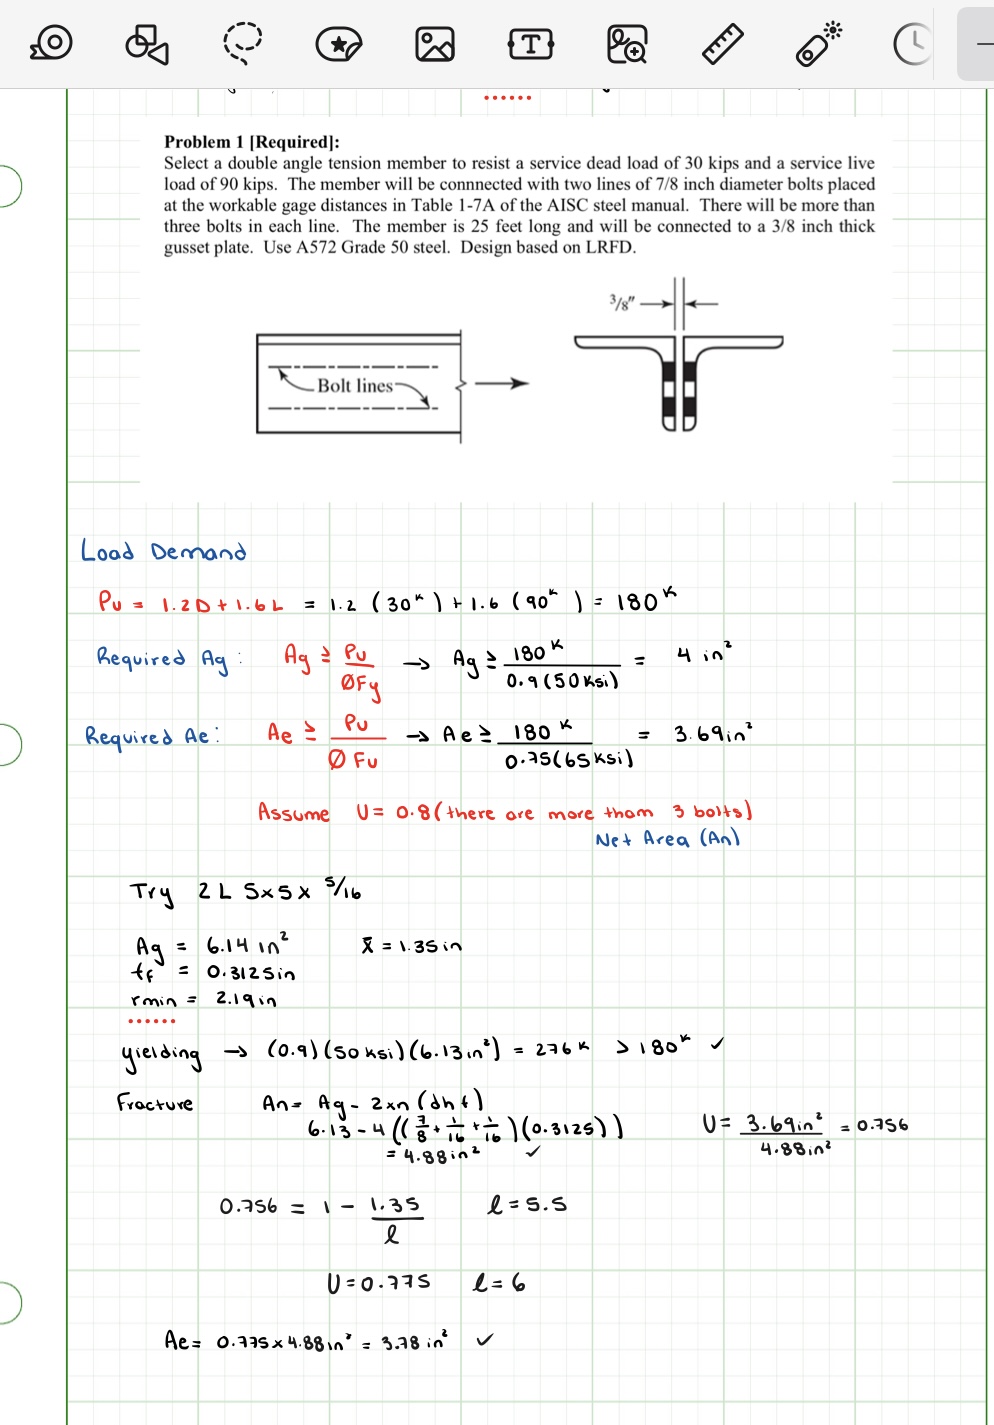 Problem 1 [Required]:
Select a double angle tension member to resist a service dead load of 30 kips and a service live
load of 90 kips. The member will be connnected with two lines of 7/8 inch diameter bolts placed
at the workable gage distances in Table 1-7A of the AISC steel manual. There will be more than
three bolts in each line. The member is 25 feet long and will be connected to a 3/8 inch thick
gusset plate. Use A572 Grade 50 steel. Design based on LRFD.
3/8"
Bolt lines
Load Demand
Pu = 1.2D + 1.6L = 1.2 (30ᵏ) + 1.6 (90ᵏ) = 180ᴷ
Required Ag: Ag ≥ Pu/ØFy → Ag ≥ 180ᴷ/0.9(50ksi) = 4 in²
Required Ae: Ae ≥ Pu/Ø Fu → Ae ≥ 180ᴷ/0.75(65ksi) = 3.69in²
Assume U = 0.8 (there are more tham 3 bolts)
Net Area (An)
Try 2L 5x5x 5/16
Ag = 6.14 in² x̄ = 1.35in
tf = 0.3125in
rmin = 2.19in
yielding → (0.9)(50ksi)(6.13in²) = 276k > 180ᵏ ✓
Fracture An = Ag - 2xn (dht)
6.13 - 4((7/8 + 1/16 + 1/16)(0.3125)) U = 3.69in²/4.88in² = 0.756
= 4.88in² ✓
0.756 = 1 - 1.35/ℓ ℓ = 5.5
U = 0.775 ℓ = 6
Ae = 0.775 x 4.88in² = 3.78 in² ✓